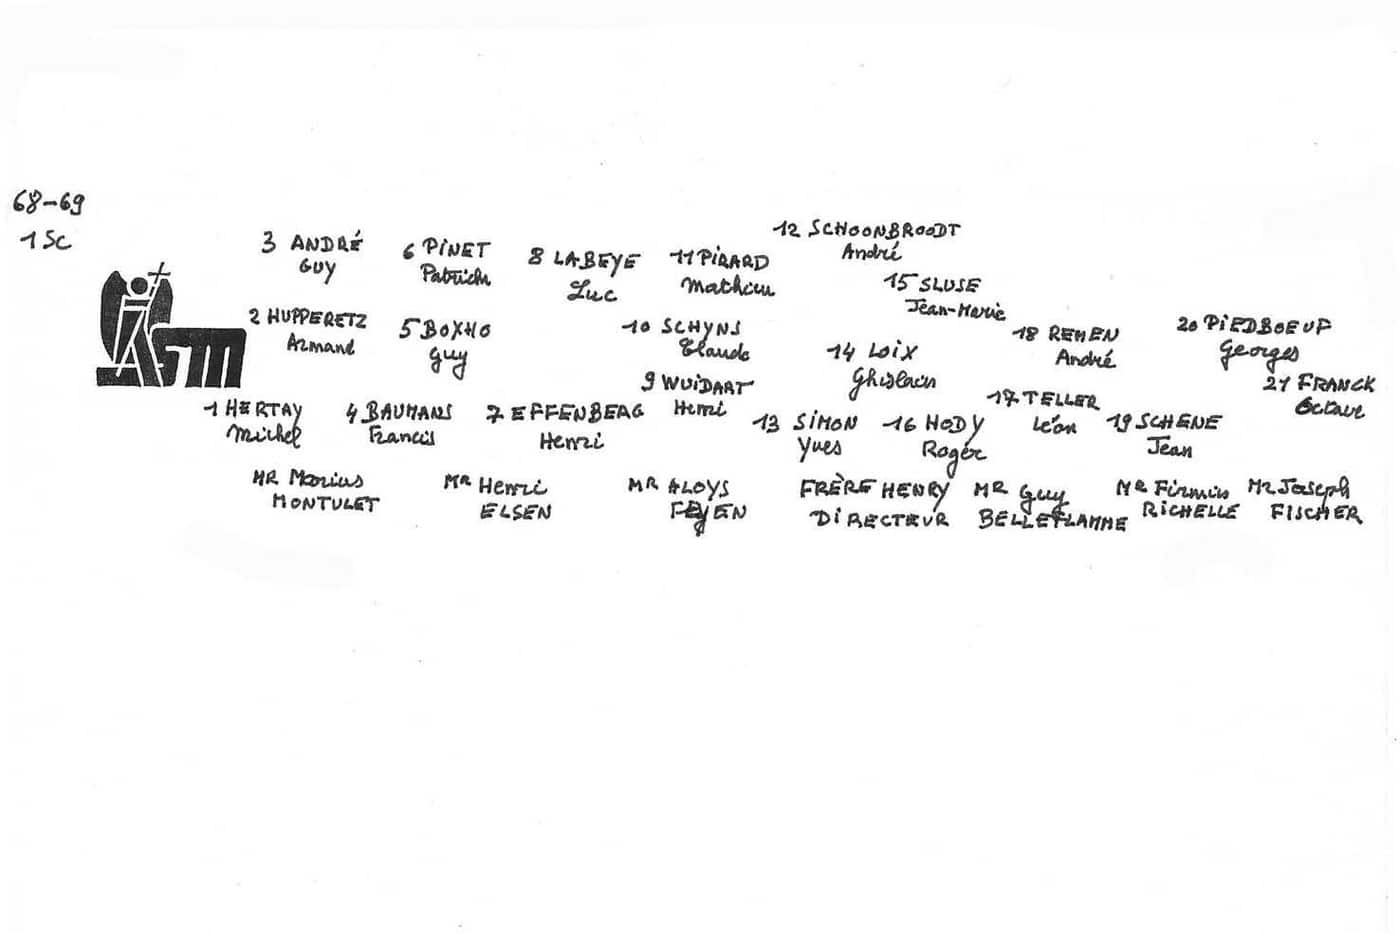 68-69
1 Sc
12 SCHOONBROODT
André
3 ANDRÉ
GUY
6 PINET
Patrick
8 LABEYE
Luc
11 PIRARD
Mathieu
15 SLUSE
Jean-Marie
2 HUPPERETZ
Armand
5 BOXHO
Guy
10 SCHYNS
Claude
14 LOIX
Ghislain
18 REMEN
André
20 PIEDBOEUF
Georges
9 WUIDART
Henri
21 FRANCK
Octave
ASM
1 HERTAY
Michel
4 BAUMANS
Francis
7 EFFENBERG
Henri
13 SIMON
Yves
16 HODY
Roger
17 TELLER
Léon
19 SCHENE
Jean
MR Marius
MONTULET
MR Henri
ELSEN
MR ALOYS
FEYEN
FRÈRE HENRY
DIRECTEUR
MR Guy
BELLEFLAMME
MR Firmin
RICHELLE
Mr Joseph
FISCHER